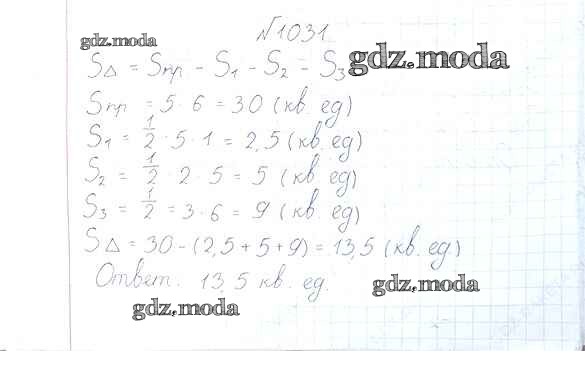 №1031
gdz.moda
S△ = Sпр - S1 - S2 - S3 gdz.moda
Sпр = 5 · 6 = 30 (кв. ед)
S1 = 1/2 · 5 · 1 = 2,5 (кв. ед)
S2 = 1/2 · 2 · 5 = 5 (кв. ед)
S3 = 1/2 = 3 · 6 = 9 (кв. ед)
S△ = 30 - (2,5 + 5 + 9) = 13,5 (кв. ед)
Ответ. 13,5 кв. ед. gdz.moda
gdz.moda